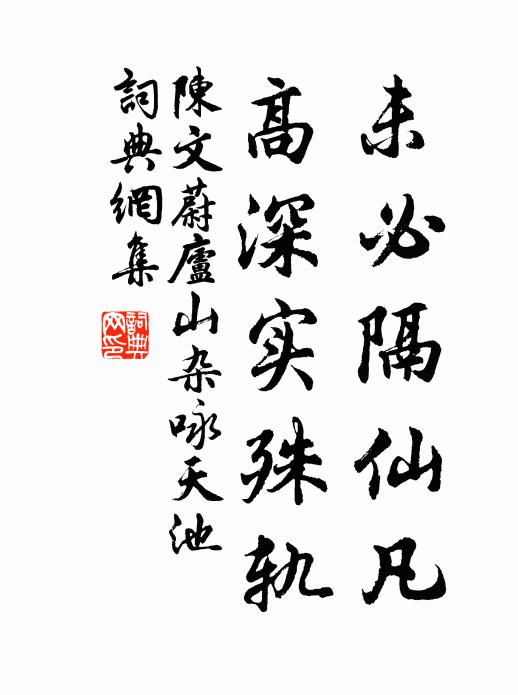 未必隔仙凡
高深实殊轨
陳文蔚廬山杂咏天池
詞典網集
詞典
网印